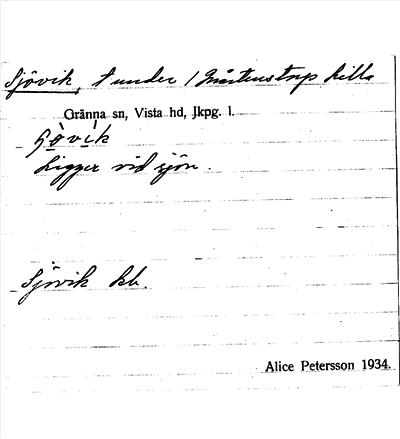 Sjövik, t under 1 Mårtenstorp lilla
Gränna sn, Vista hd, Jkpg. l.
Ligger vid sjön.
Sjövik kb.
Alice Petersson 1934.